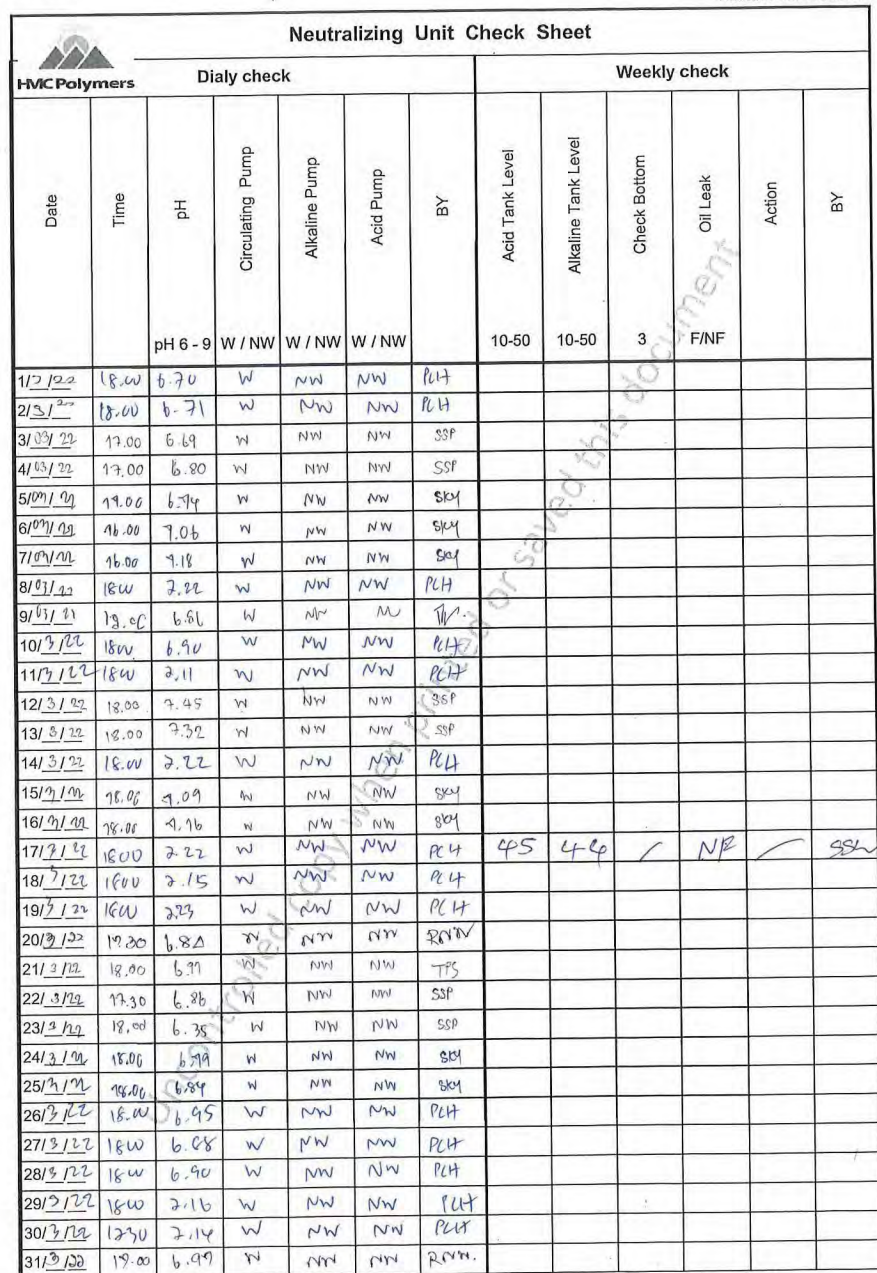 Neutralizing Unit Check Sheet
HMC Polymers
Dialy check Weekly check
Date Time pH Circulating Pump Alkaline Pump Acid Pump BY Acid Tank Level Alkaline Tank Level Check Bottom Oil Leak Action BY
pH 6 - 9 W / NW W / NW W / NW 10-50 10-50 3 F/NF
1/ 18.00 6.70 W NW NW PCH
2/3/ 18.00 6.71 W NW NW PCH
3/03/22 17.00 6.69 W NW NW SSP
4/03/22 17.00 6.80 W NW NW SSP
5/03/22 W NW NW SKY
6/03/22 16.00 7.06 W NW NW SKY
7/03/22 16.00 7.18 W NW NW SKY
8/03/22 1800 7.22 W NW NW PCH
9/03/ 6.81 W
10/3/22 1800 6.90 W NW NW PCH
11/3/22 1800 7.11 W NW NW PCH
12/3/22 18.00 7.45 W NW NW SSP
13/3/22 18.00 7.32 W NW NW SSP
14/3/22 18.00 7.22 W NW NW PCH
15/3/22 18.00 7.09 W NW NW SKY
16/3/22 18.00 7.16 W NW NW SKY
17/3/22 1800 7.22 W NW NW PCH 45 44 / NF /
18/3/22 1800 7.15 W NW NW PCH
19/3/22 1800 7.23 W NW NW PCH
20/3/22 W NW NW RNN
21/3/22 18.00 W NW NW TPS
22/3/22 17.30 6.86 W NW NW SSP
23/3/22 18.00 6.35 W NW NW SSP
24/3/22 18.00 W NW NW SKY
25/3/22 18.00 6.84 W NW NW SKY
26/3/22 18.00 6.95 W NW NW PCH
27/3/22 1800 6.88 W NW NW PCH
28/3/22 1800 6.90 W NW NW PCH
29/3/22 1800 7.16 W NW NW PCH
30/3/22 1730 7.14 W NW NW PCH
31/3/22 W NW NW RNN.
Uncontrolled copy when printed or saved this document